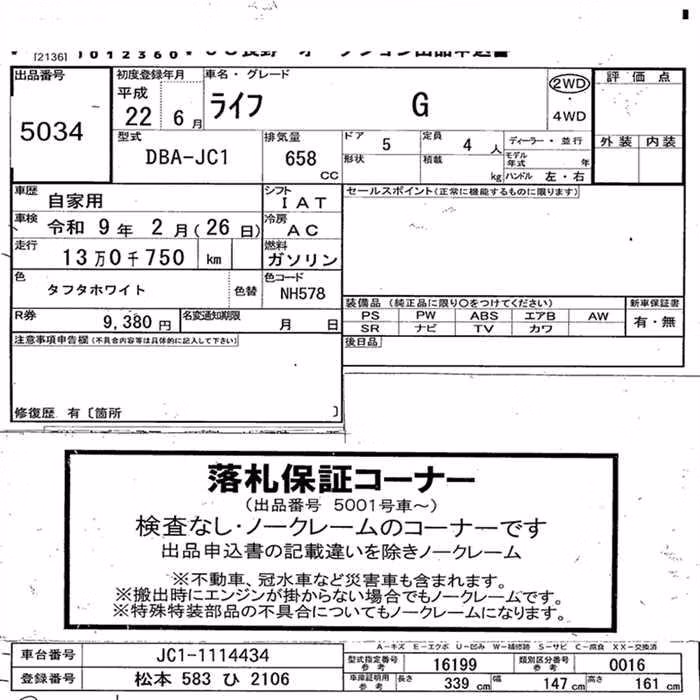 [2136] 012360 オークション出品申込書
出品番号 5034
初度登録年月 平成 22 6月
車名・グレード ライフ G
2WD・4WD
評価点
外装 内装
型式 DBA-JC1
排気量 658 CC
ドア 5
定員 4 人
ディーラー・並行
形状
積載 kg
モデル年式 年
ハンドル 左・右
車歴 自家用
シフト IAT
車検 令和 9年 2月(26日)
冷房 AC
走行 13万0千750 km
燃料 ガソリン
色 タフタホワイト
色替
色コード NH578
R券 9,380円
名変通知期限 月 日
セールスポイント(正常に機能するものに限ります)
装備品 (純正品に限り○をつけてください)
新車保証書
PS PW ABS エアB AW
SR ナビ TV カワ
有・無
後日品
注意事項申告欄(不具合内容等は具体的に記入して下さい)
修復歴 有〔箇所 〕
落札保証コーナー
(出品番号 5001号車~)
検査なし・ノークレームのコーナーです
出品申込書の記載違いを除きノークレーム
※不動車、冠水車など災害車も含まれます。
※搬出時にエンジンが掛からない場合でもノークレームです。
※特殊特装部品の不具合についてもノークレームになります。
A-キズ E-エクボ U-凹み W-補修跡 S-サビ C-腐食 XX-交換済
車台番号 JC1-1114434
型式指定番号 参考 16199
類別区分番号 参考 0016
登録番号 松本 583 ひ 2106
車庫証明用 参考 長さ 339 cm 幅 147 cm 高さ 161 cm